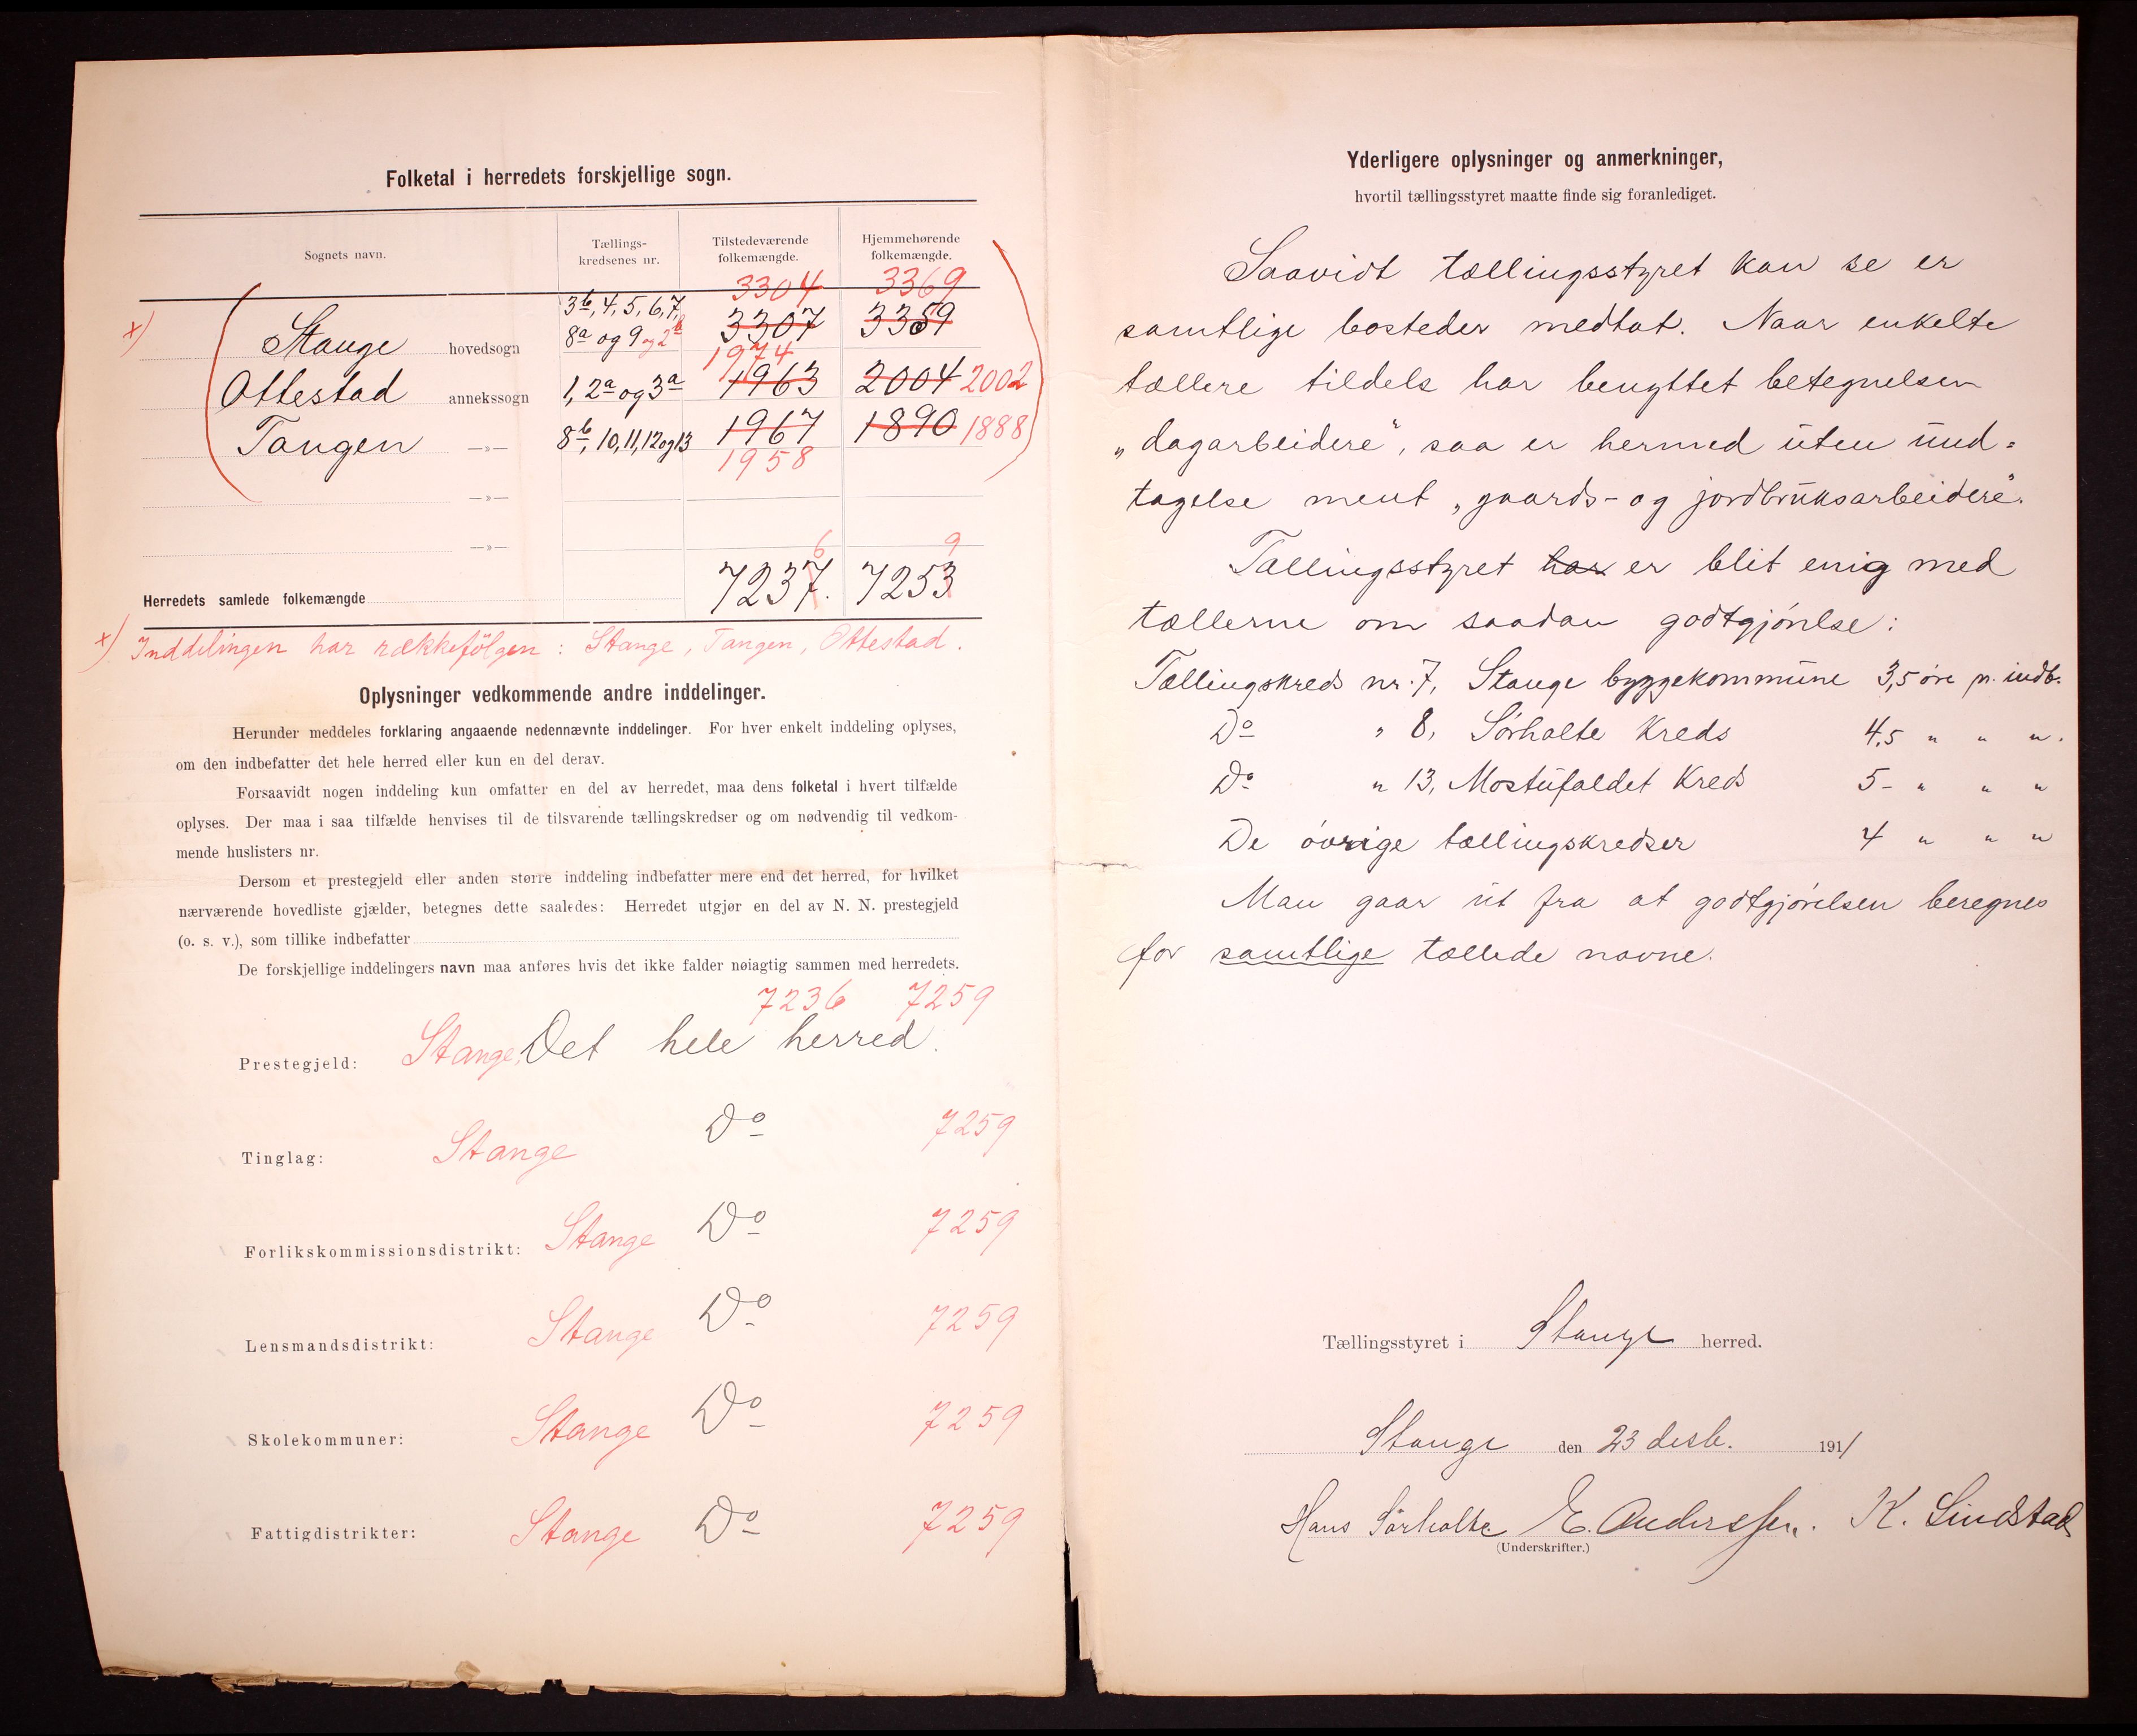 Folketal i herredets forskjellige sogn.
Sognets navn.
Tællings-
kredsenes nr.
Tilstedeværende
folkemængde.
Hjemmehørende
folkemængde.
3304 3369
x) Stange hovedsogn 3b, 4, 5, 6, 7, 8a og 9 og 2b 3307 3359
1974
Ottestad annekssogn 1, 2a og 3a 1963 2004 2002
Tangen —»— 8b, 10, 11, 12 og 13 1967 1890 1888
1958
—»—
—»—
6 9
Herredets samlede folkemængde 7237. 7253
x) Inddelingen har rækkefölgen: Stange, Tangen, Ottestad.
Oplysninger vedkommende andre inddelinger.
Herunder meddeles forklaring angaaende nedennævnte inddelinger. For hver enkelt inddeling oplyses,
om den indbefatter det hele herred eller kun en del derav.
Forsaavidt nogen inddeling kun omfatter en del av herredet, maa dens folketal i hvert tilfælde
oplyses. Der maa i saa tilfælde henvises til de tilsvarende tællingskredser og om nødvendig til vedkom-
mende huslisters nr.
Dersom et prestegjeld eller anden større inddeling indbefatter mere end det herred, for hvilket
nærværende hovedliste gjælder, betegnes dette saaledes: Herredet utgjør en del av N. N. prestegjeld
(o. s. v.), som tillike indbefatter
De forskjellige inddelingers navn maa anføres hvis det ikke falder nøiagtig sammen med herredets.
7236 7259
Prestegjeld: Stange, Det hele herred.
Tinglag: Stange Do 7259
Forlikskommissionsdistrikt: Stange Do 7259
Lensmandsdistrikt: Stange Do 7259
Skolekommuner: Stange Do 7259
Fattigdistrikter: Stange Do 7259
Yderligere oplysninger og anmerkninger,
hvortil tællingsstyret maatte finde sig foranlediget.
Saavidt tællingsstyret kan se er
samtlige bosteder medtat. Naar enkelte
tællere tildels har benyttet betegnelsen
„dagarbeidere", saa er hermed uten und=
tagelse ment „gaards- og jordbruksarbeidere".
Tællingsstyret har er blit enig med
tællerne om saadan godtgjörelse:
Tællingskreds nr. 7, Stange byggekommune 3,5 öre pr. indb.
Do " 8, Sörholte Kreds 4,5 " " ".
Do " 13, Mostufaldet Kreds 5- " " "
De övrige tællingskredser 4 " " "
Man gaar ut fra at godtgjörelsen beregnes
for samtlige tællede navne.
Tællingsstyret i Stange herred.
Stange den 23 desb. 1911
Hans Sörholte E. Anderssen. K. Lindstad
(Underskrifter.)